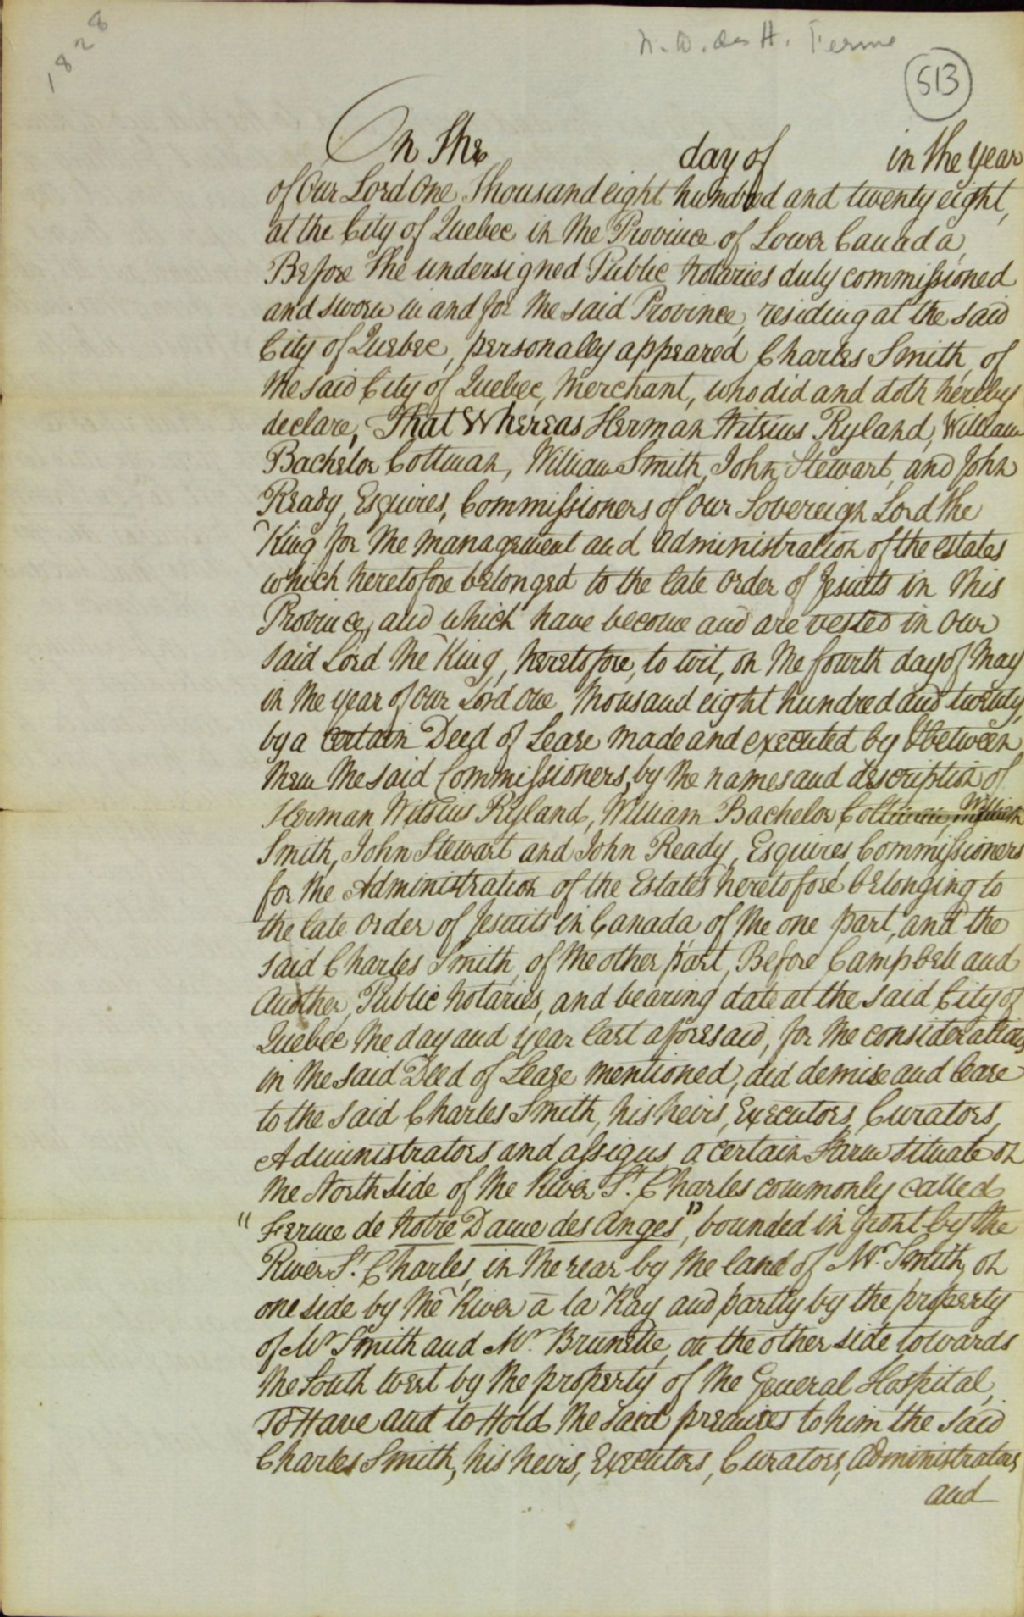 1828
N. D. des A. Ferme
513
On the day of in the Year
of Our Lord One Thousand eight hundred and twenty eight,
at the City of Quebec in the Province of Lower Canada,
Before the undersigned Public Notaries duly commissioned
and sworn in and for the said Province, residing at the said
City of Quebec, personally appeared Charles Smith, of
the said City of Quebec, Merchant, who did and doth hereby
declare, That Whereas Herman Witsius Ryland, William
Bachelor Coltman, William Smith, John Stewart, and John
Ready, Esquires, Commissioners of Our Sovereign Lord the
King for the management and administration of the estates
which heretofore belonged to the late order of Jesuits in this
Province, and which have become and are vested in Our
said Lord the King, heretofore, to wit, on the fourth day of May
in the year of Our Lord one thousand eight hundred and twenty,
by a certain Deed of Lease made and executed by & between
them the said Commissioners, by the names and description of
Herman Witsius Ryland, William Bachelor Coltman, William
Smith, John Stewart and John Ready, Esquires, Commissioners
for the Administration of the Estates heretofore belonging to
the late order of Jesuits in Canada of the one part, and the
said Charles Smith, of the other part, Before Campbell and
Another, Public Notaries, and bearing date at the said City of
Quebec the day and year last aforesaid, for the considerations
in the said Deed of Lease mentioned, did demise and lease
to the said Charles Smith, his heirs, Executors, Curators,
Administrators and assigns a certain Farm situate on
the North side of the River St. Charles commonly called
"Ferme de Notre Dame des Anges", bounded in front by the
River St. Charles, in the rear by the land of Mr. Smith, on
one side by the River a la Ray and partly by the property
of Mr Smith and Mr. Brunette, on the other side towards
the South West by the property of the General Hospital,
To Have and to Hold the said premises to him the said
Charles Smith, his heirs, Executors, Curators, Administrators
and